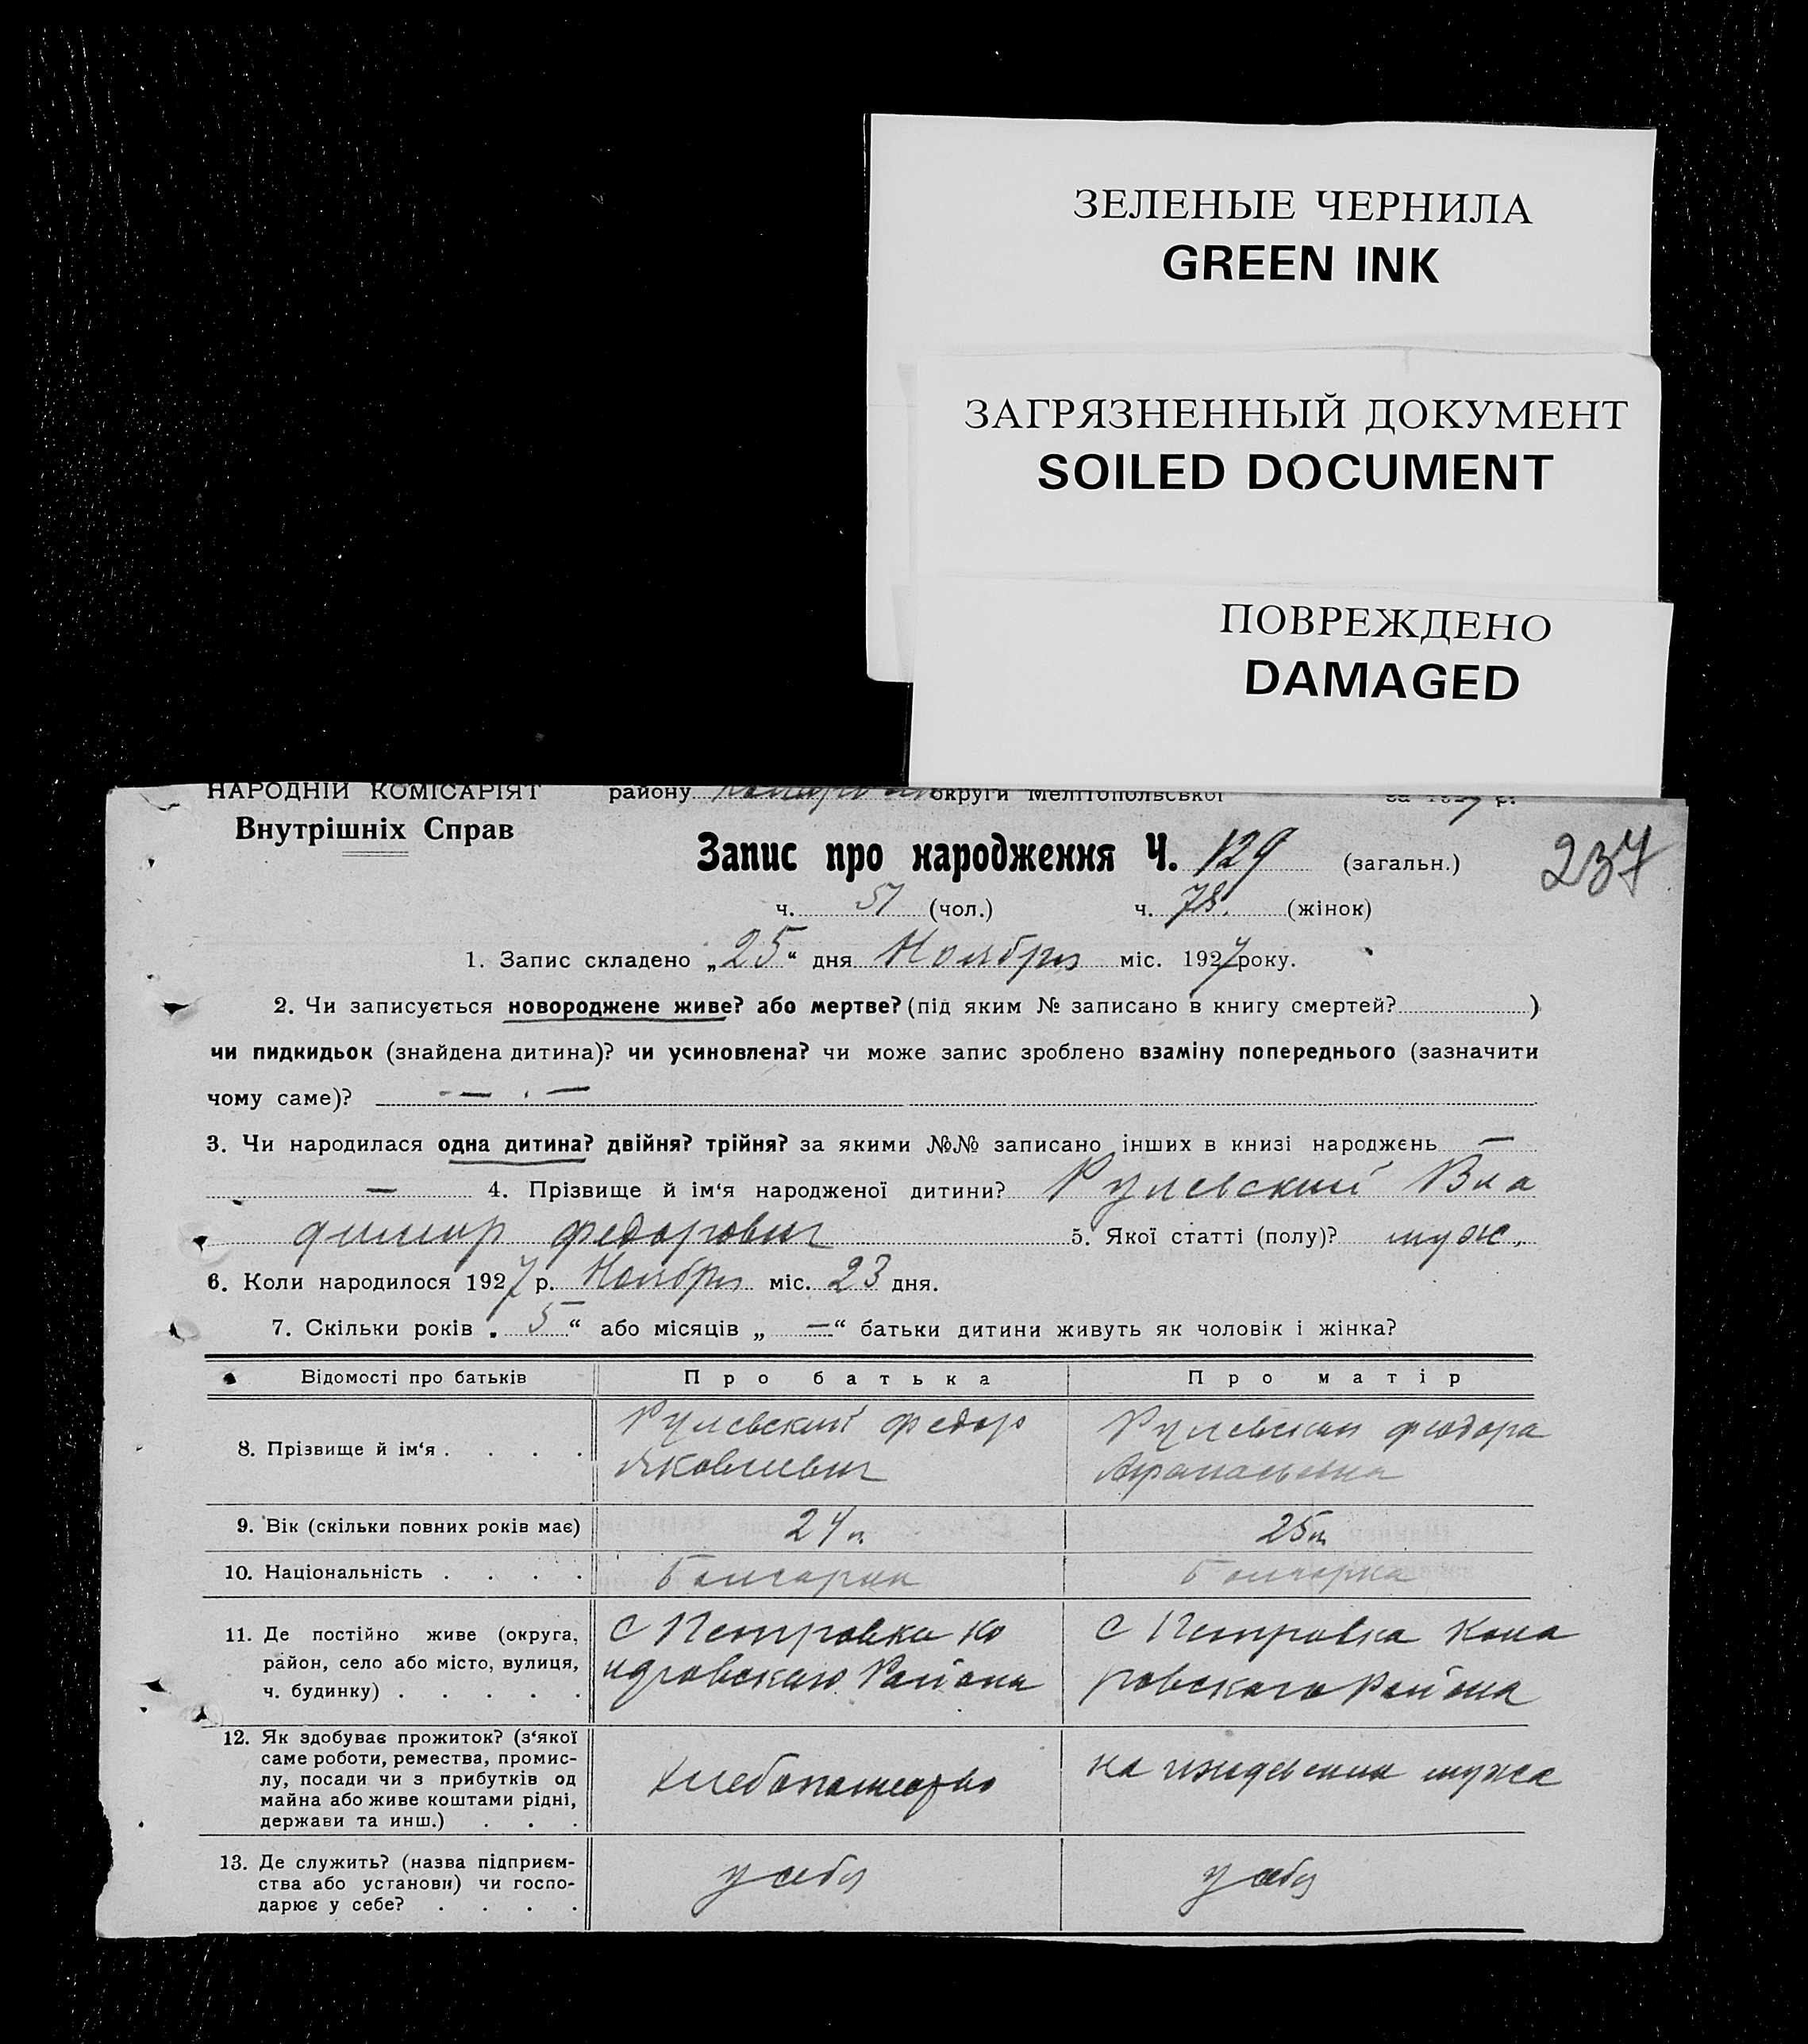 ЗЕЛЕНЫЕ ЧЕРНИЛА
GREEN INK
ЗАГРЯЗНЕННЫЙ ДОКУМЕНТ
SOILED DOCUMENT
ПОВРЕЖДЕНО
DAMAGED
НАРОДНІЙ КОМІСАРІЯТ району округи Мелітопольської за 1927 р.
Внутрішніх Справ
Запис про народження Ч. 129 (загальн.) 237
ч. 51 (чол.) ч. 78. (жінок)
1. Запис складено „25“ дня Ноября міс. 1927 року.
2. Чи записується новороджене живе? або мертве? (під яким № записано в книгу смертей? )
чи пидкидьок (знайдена дитина)? чи усиновлена? чи може запис зроблено взаміну попереднього (зазначити
чому саме)? — . —
3. Чи народилася одна дитина? двійня? трійня? за якими №№ записано інших в книзі народжень —
— 4. Прізвище й ім‘я народженої дитини? Рулевский Вла
димир Федорович 5. Якої статті (полу)? муж.
6. Коли народилося 1927 р. Ноября міс. 23 дня.
7. Скільки років „ 5 “ або місяців „ — “ батьки дитини живуть як чоловік і жінка?
Відомості про батьків Про батька Про матір
8. Прізвище й ім‘я . . . . Рулевский Федор Рулевская Федора
Яковлевич Афанасьевна
9. Вік (скільки повних років має) 24 л. 25 л.
10. Національність . . . . Болгарин Болгарка
11. Де постійно живе (округа, С Петровка С Петровка Кола
район, село або місто, вулиця, Района ровского Района
ч. будинку) . . . . .
12. Як здобуває прожиток? (з‘якої
саме роботи, ремества, промис-
лу, посади чи з прибутків од хлебопашество на иждевении мужа
майна або живе коштами рідні,
держави та инш.) . . .
13. Де служить? (назва підприєм-
ства або установи) чи госпо- у себя у себя
дарює у себе? . . . .